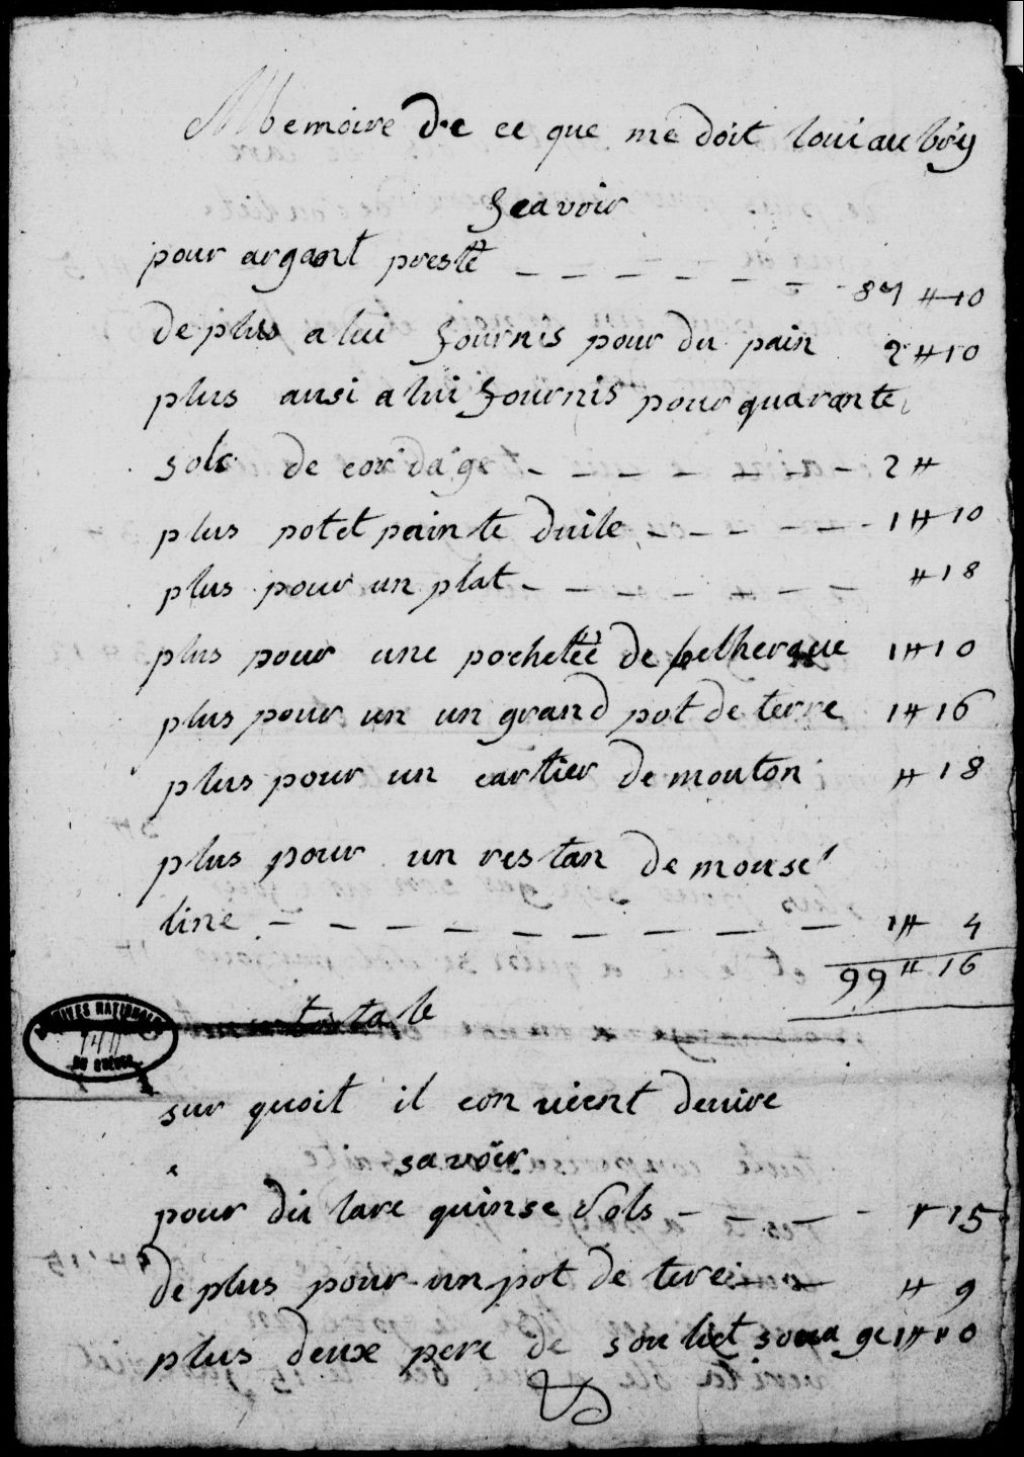 Memoire de ce que me doit loui aubry
Scavoir
pour argant presté 87 ₶ 10
de plus a lui fournis pour du pain 2 ₶ 10
plus ausi a lui fournis pour quarante
sols de cordage 2 ₶
plus pot et painte duile 1 ₶ 10
plus pour un plat ₶ 18
plus pour une pochetéé de
1 ₶ 10
plus pour un un grand pot de terre 1 ₶ 16
plus pour un cartier de mouton ₶ 18
plus pour un restan de mouse
line 1 ₶ 4
99 ₶ 16
totale
ARCHIVES NATIONALES
DU QUEBEC
sur quoit il convient deuire
savoir
pour du lare quinse sols 15
de plus pour un pot de tere ₶ 9
plus deux pere de souliet souage 1 ₶ 10